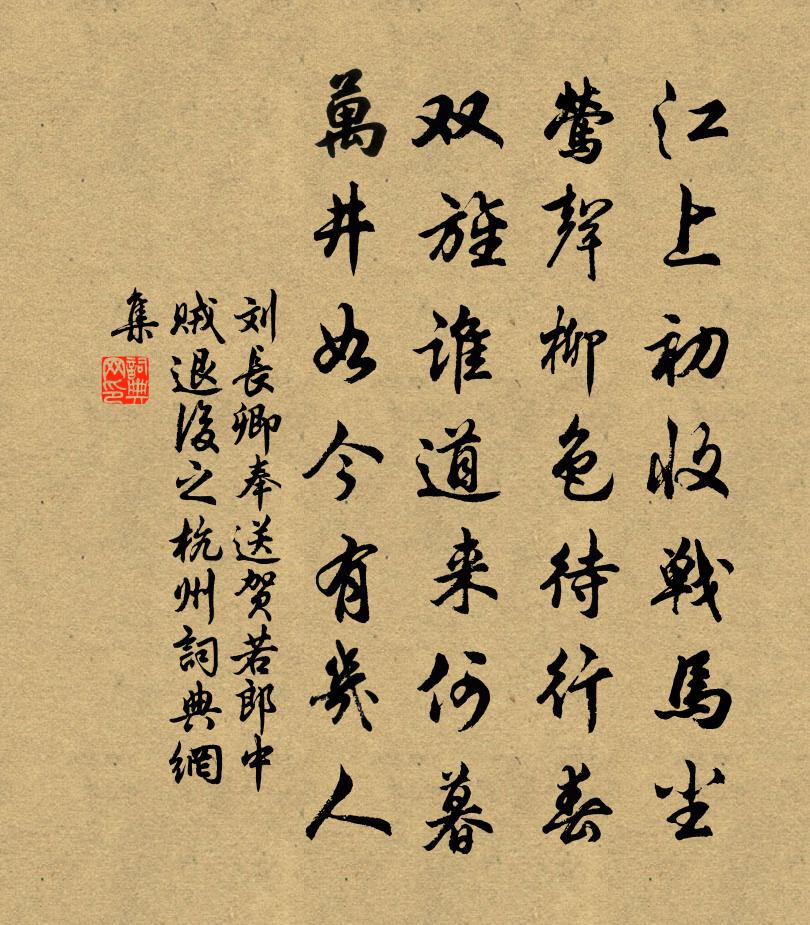 江上初收戰馬尘
鶯聲柳色待行春
双旌谁道来何暮
萬井如今有幾人
刘長卿奉送贺若郎中
贼退後之杭州詞典網
集
詞典网印